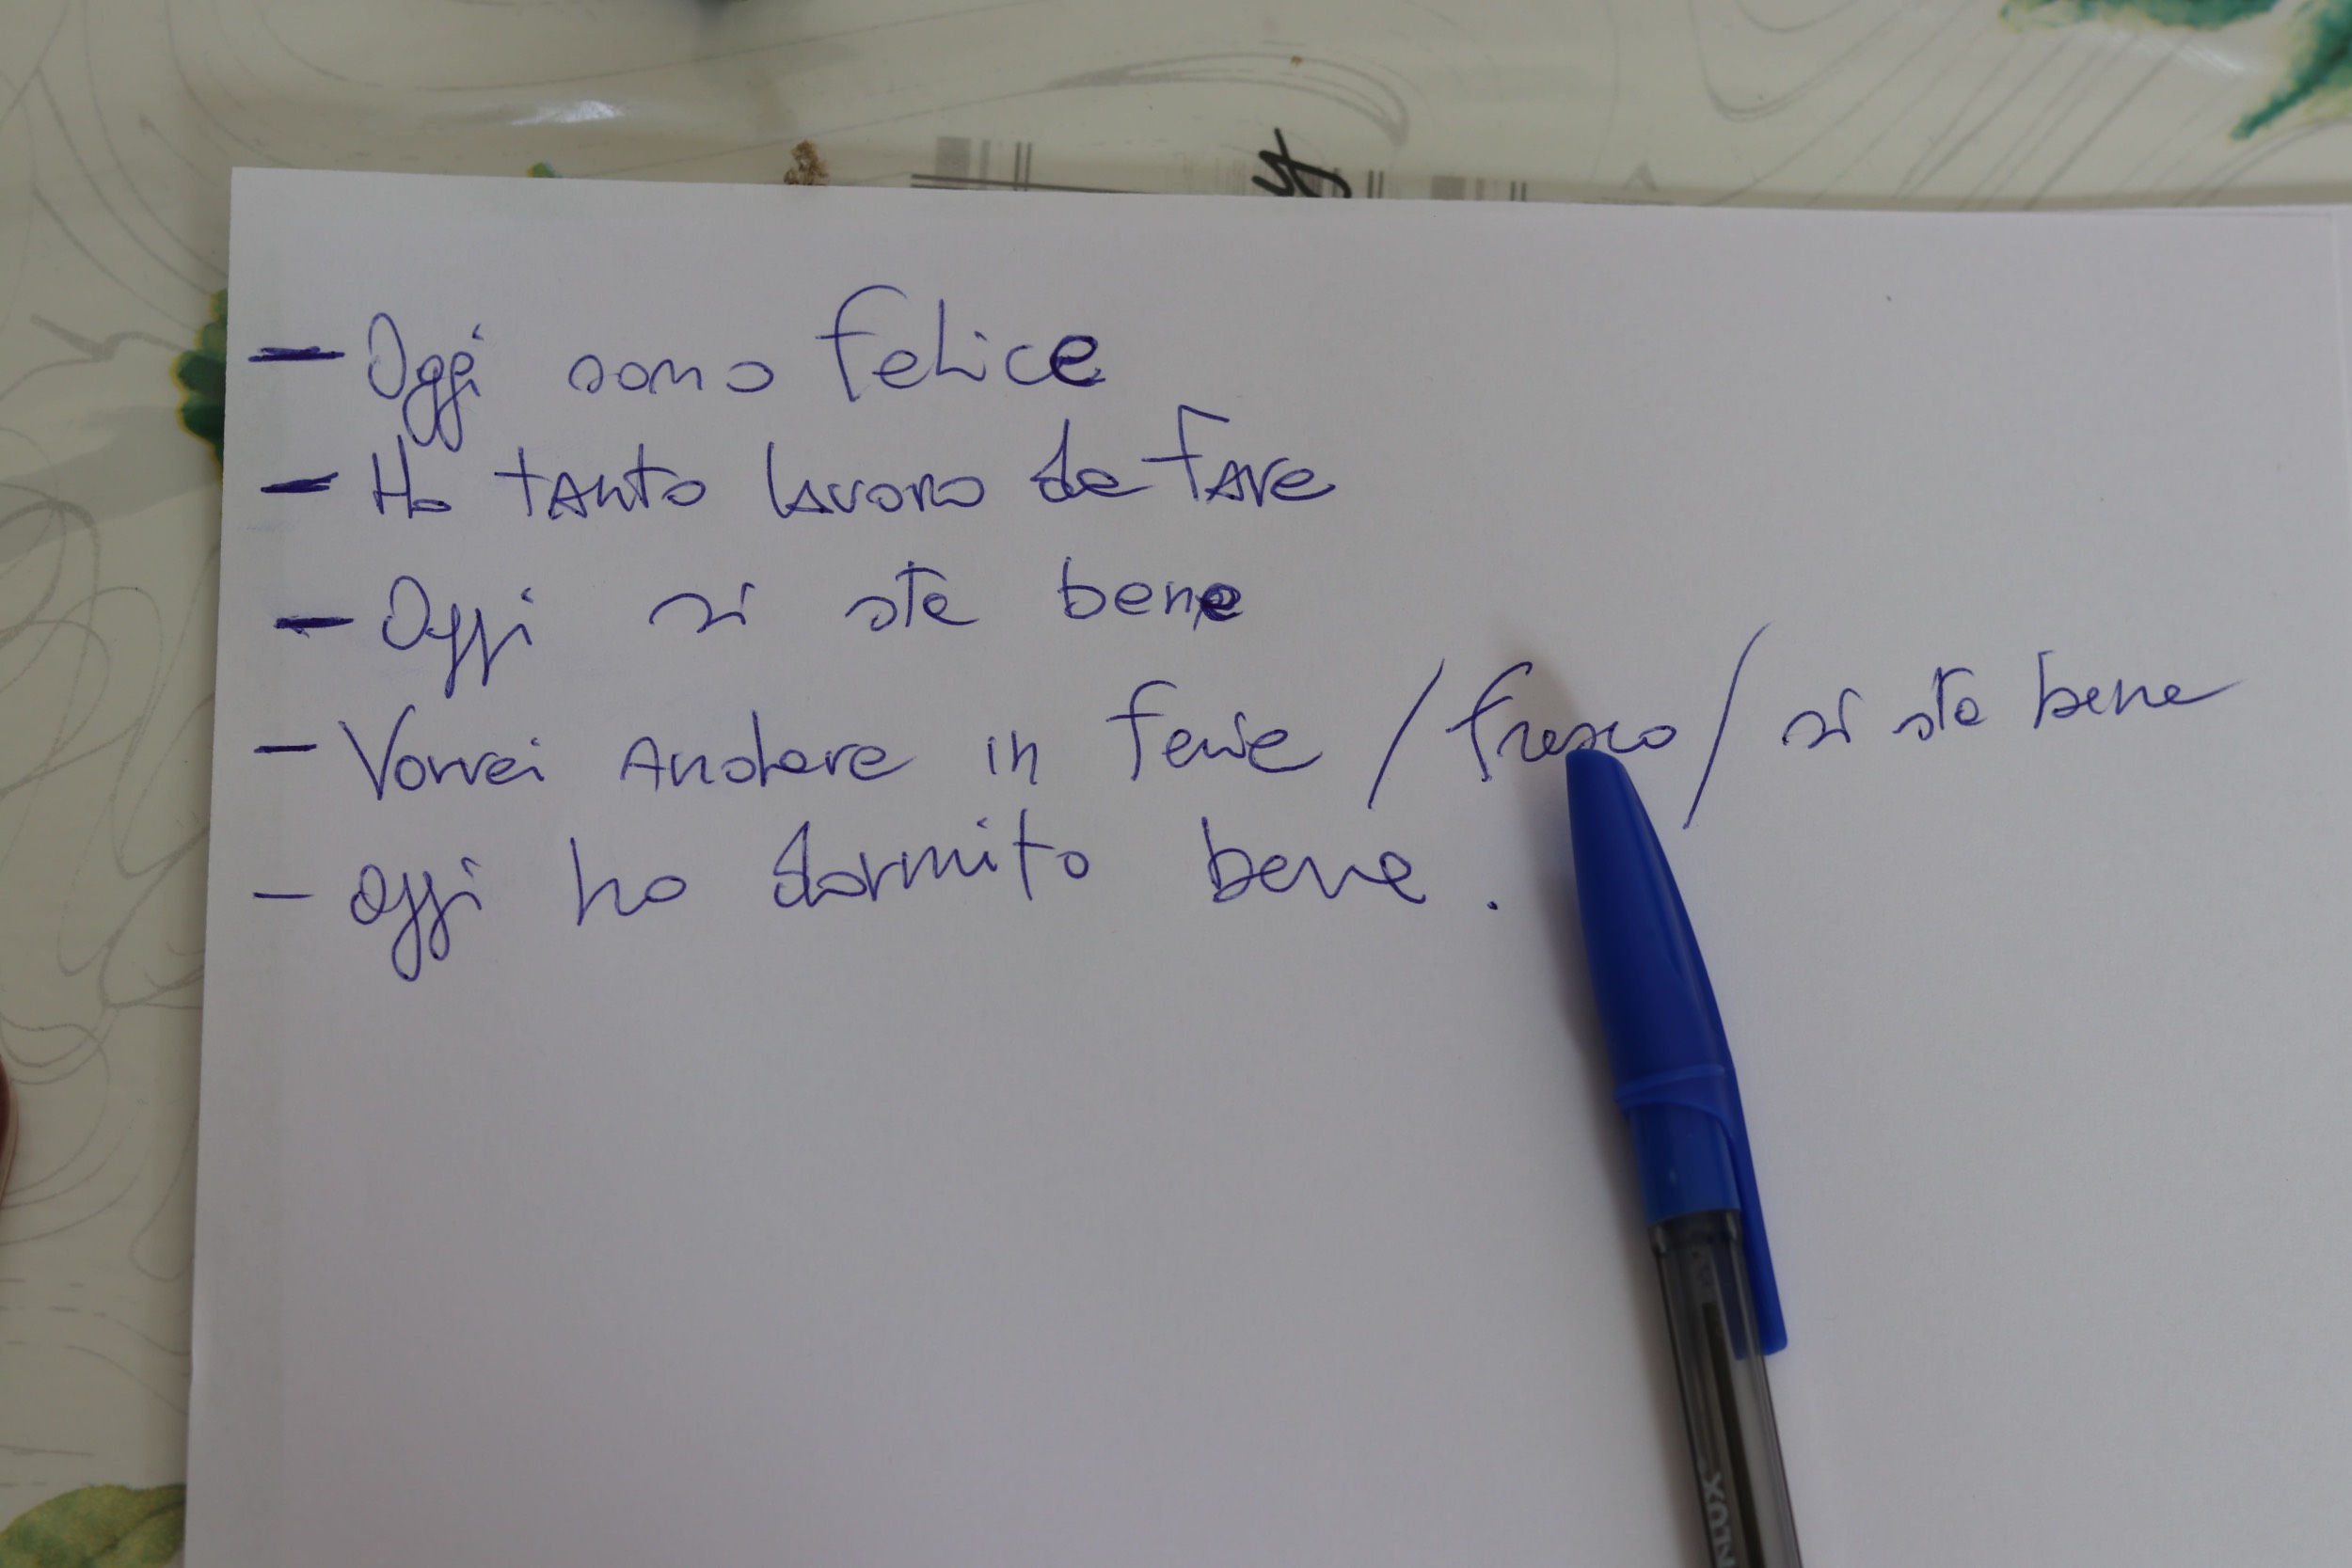 - Oggi sono felice
- Ho tanto lavoro da fare
- Oggi si sta bene
- Vorrei andare in ferie / fresco / si sta bene
- Oggi ho dormito bene.